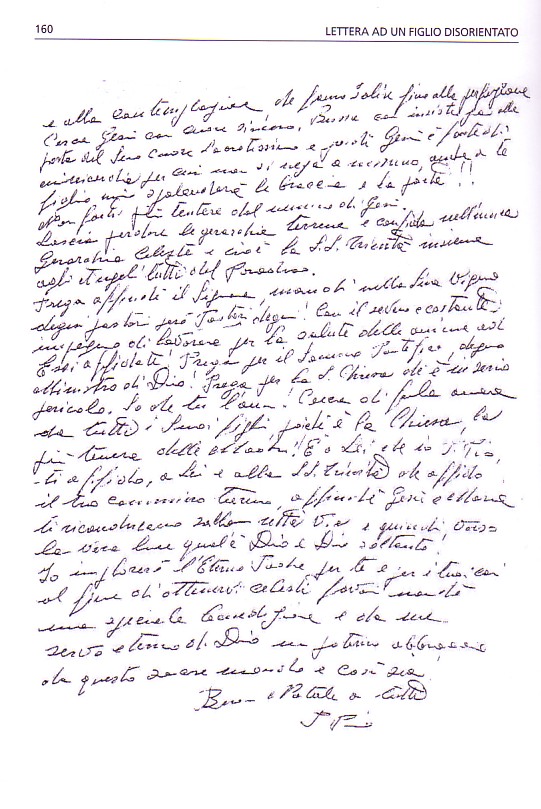 160
LETTERA AD UN FIGLIO DISORIENTATO
e alla contemplazione che fanno salire fino alla perfezione
Cerca Gesù con cuore sincero, Bussa con insistenza alla
porta del Suo Cuore poiché Gesù è fonte di
misericordia per cui non si nega a nessuno, anche a te
figlio mio spalancherà le braccia e la porta!!
Non farti più tentare dal nemico di Gesù.
Lascia perdere le gerarchie terrene e confida nell'unica
Gerarchia Celeste e cioè la S.S. Trinità insieme
agli Angeli tutti del Paradiso.
Prega affinché il Signore, mandi nella Sua Vigna
degni pastori però Pastori degni! Con il serio e costante
impegno di lavorare per la salute delle anime ad
Essi affidate! Prega per il Sommo Pontefice, degno
Ministro di Dio! Prega per la S. Chiesa ch'è in serio
pericolo. So che tu l'ami! Cerca di farla amare
da tutti i Suoi figli poiché è la Chiesa, la
più tenera delle Madri! È a Lei, che io P. Pio,
ti affido, a Lei e alla S.S. Trinità che affido
il tuo cammino terreno, affinché Gesù e Maria
ti riconducano sulla retta Via e quindi, verso
la vera luce qual'è Dio e Dio soltanto!
Io implorerò l'Eterno Padre per te e per i tuoi cari
al fine di ottenervi celesti favori nonché
una speciale benedizione e da un
servo eterno di Dio un paterno abbraccio
da questo mondo e così sia.
Buon Natale a tutti
P Pio